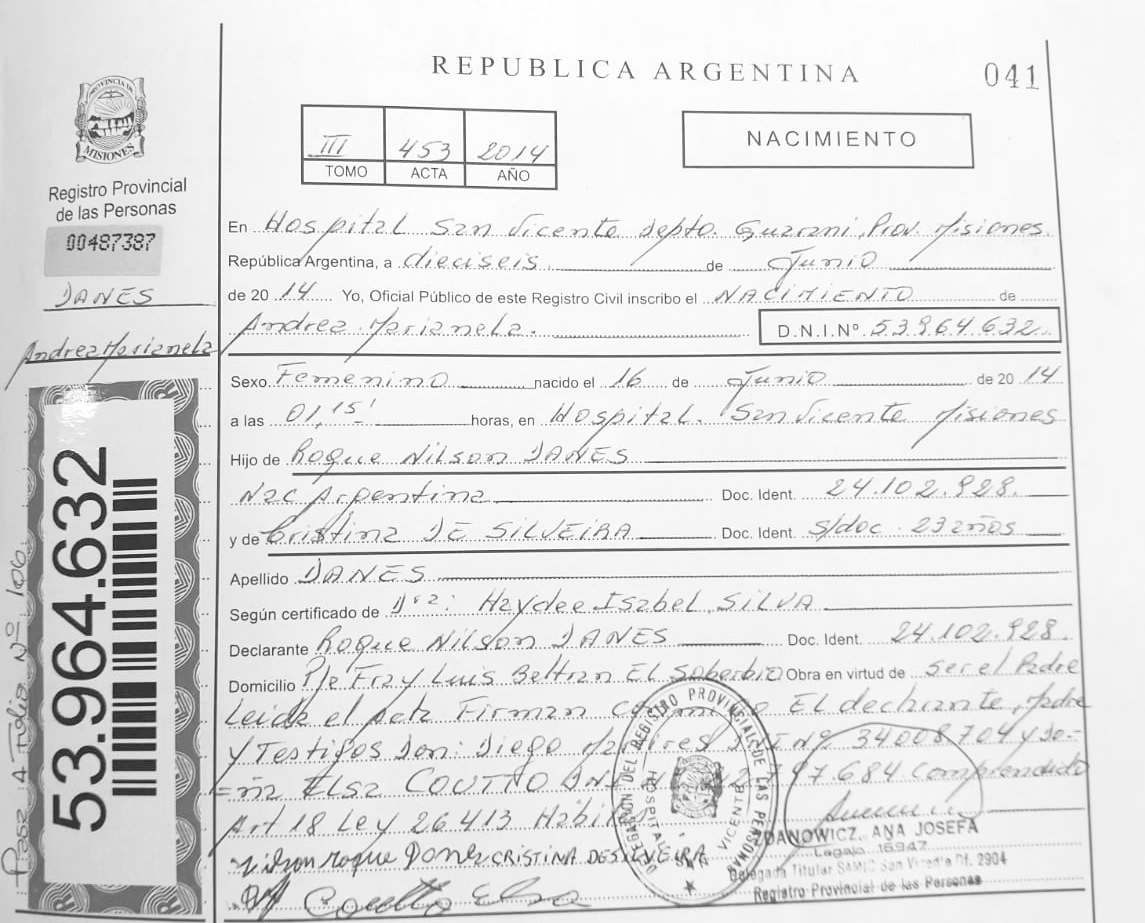 REPUBLICA ARGENTINA
041
PROVINCIA DE MISIONES
Registro Provincial
de las Personas
00487387
DANES
Andrea Marianela
53.964.632
Pasa A Folio Nº 106
III 453 2014
TOMO ACTA AÑO
NACIMIENTO
En Hospital San Vicente depto. Guarani, Prov. Misiones
República Argentina, a dieciseis de Junio
de 2014 Yo, Oficial Público de este Registro Civil inscribo el NACIMIENTO de
Andrea Marianela. D.N.I.Nº 53.964.632
Sexo Femenino nacido el 16 de Junio de 2014
a las 01,15' horas, en Hospital. San Vicente Misiones
Hijo de Roque Nilson DANES
Nac Argentina Doc. Ident. 24.102.928.
y de Cristina DE SILVEIRA Doc. Ident. s/doc. 23 años
Apellido DANES
Según certificado de Dra: Haydee Isabel SILVA
Declarante Roque Nilson DANES Doc. Ident. 24.102.928.
Domicilio Pje Fray Luis Beltran El Soberbio Obra en virtud de ser el Padre
Leida el acta Firman El declarante, Madre
y Testigos Don: Diego Nº 34008704 y Do-
ña Elsa COUTTO 97.684 Comprendido
Art 18 Ley 26.413
Nilson roque Danes CRISTINA DE SILVEIRA
Coutto Elsa
DELEGACION DEL REGISTRO PROVINCIAL DE LAS PERSONAS
HOSPITAL VICENTE
ZDANOWICZ, ANA JOSEFA
Legajo 16947
Delegada Titular SAMIC San Vicente Of. 2904
Registro Provincial de las Personas